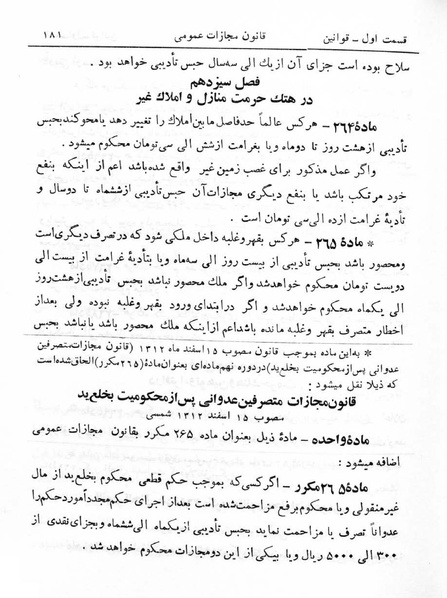 قسمت اول - قوانین
قانون مجازات عمومی
۱۸۱
سلاح بوده است جزای آن از یک الی سه‌سال حبس تأدیبی خواهد بود .
فصل سیزدهم
در هتك حرمت منازل و املاك غیر
مادهٔ ۲۶۴ – هرکس عالماً حدفاصل مابین‌املاك را تغییر دهد یا محوکند بحبس
تأدیبی ازهشت روز تا دوماه ویا بغرامت ازشش الی سی‌تومان محکوم میشود .
واگر عمل مذکور برای غصب زمین غیر واقع شده‌باشد اعم از اینکه بنفع
خود مرتکب باشد یا بنفع دیگری مجازات‌آن حبس‌تأدیبی ازششماه تا دوسال و
تأدیهٔ غرامت ازده الی‌سی تومان است .
* مادهٔ ۲۶۵ – هرکس بقهروغلبه داخل ملکی شود که درتصرف دیگری‌است
ومحصور باشد بحبس تأدیبی از بیست روز الی سه‌ماه ویا بتأدیهٔ غرامت از بیست الی
دویست تومان محکوم خواهدشد واگر ملك محصور نباشد بحبس تأدیبی‌ازهشت‌روز
الی یکماه محکوم خواهدشد و اگر درابتدای ورود بقهر وغلبه نبوده ولی بعداز
اخطار متصرف بقهر وغلبه مانده باشداعم ازاینکه ملك محصور باشد یانباشد بحبس
* به‌این ماده بموجب قانون مصوب ۱۵ اسفند ماه ۱۳۱۲ (قانون مجازات‌متصرفین
عدوانی پس‌ازمحکومیت بخلع‌ید) دردوره نهم ماده‌ای بعنوان‌مادهٔ (۲۶۵مکرر) الحاق‌شده‌است
که ذیلا نقل میشود :
قانون‌مجازات متصرفین‌عدوانی پس‌ازمحکومیت بخلع‌ید
مصوب ۱۵ اسفند ۱۳۱۲ شمسی
مادهٔ واحده – مادهٔ ذیل بعنوان ماده ۲۶۵ مکرر بقانون مجازات عمومی
اضافه میشود :
مادهٔ ۲۶۵ مکرر – اگرکسی‌که بموجب حکم قطعی محکوم بخلع‌ید از مال
غیرمنقولی ویا محکوم برفع مزاحمت‌شده است بعداز اجرای حکم‌مجدداًموردحکم‌را
عدواناً تصرف یا مزاحمت نماید بحبس تأدیبی ازیکماه الی‌ششماه وبجزای‌نقدی از
۳۰۰ الی ۵۰۰۰ ریال ویا بیکی از این دومجازات محکوم خواهد شد .